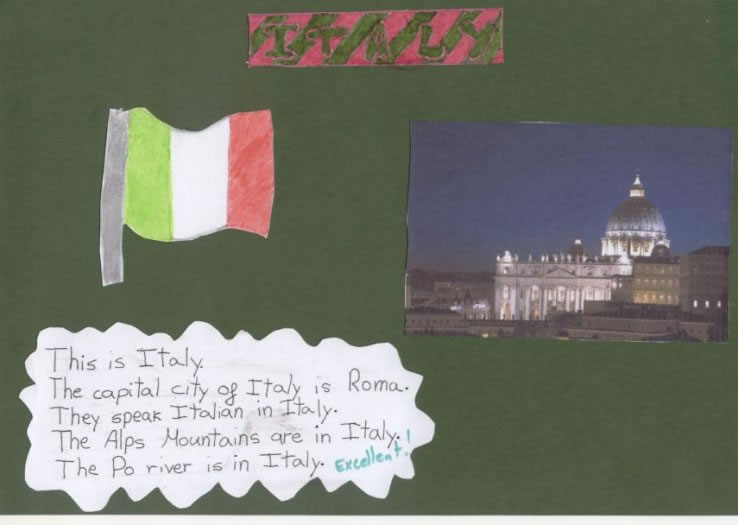 ITALY
This is Italy.
The capital city of Italy is Roma.
They speak Italian in Italy.
The Alps Mountains are in Italy.
The Po river is in Italy. Excellent!